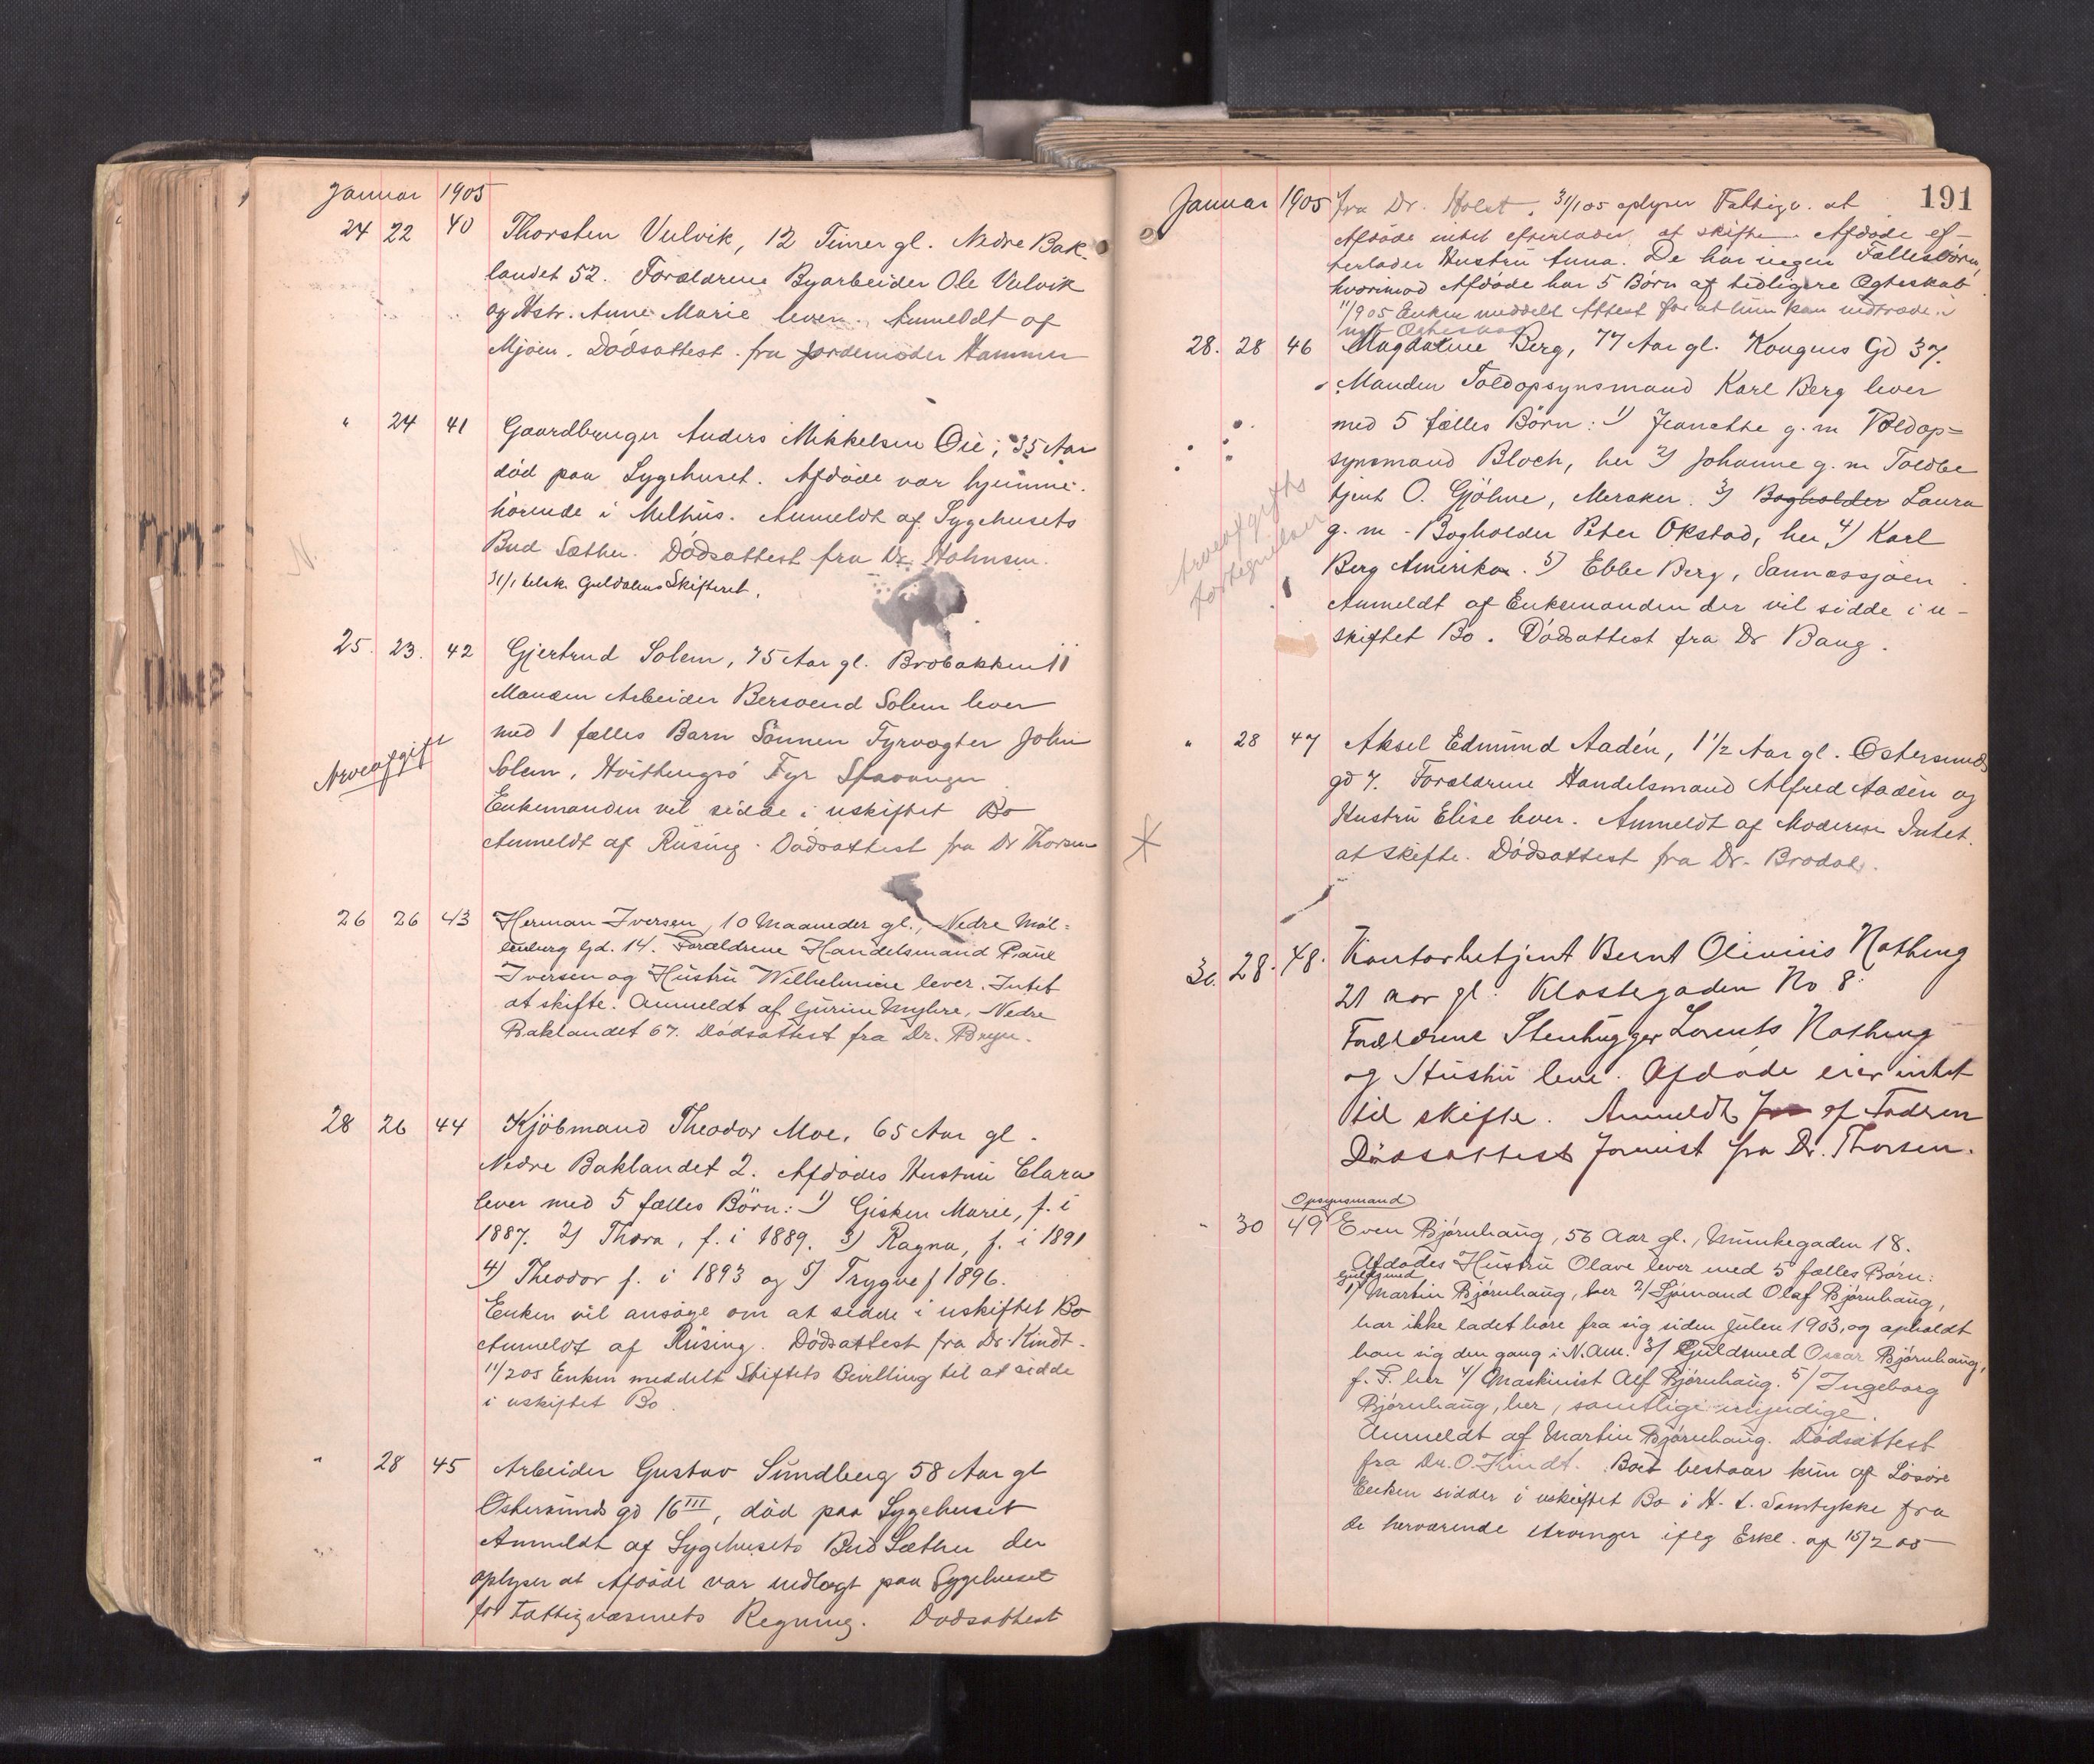 Januar 1905
24 22 40 Thorsten Vulvik, 12 Timer gl. Nedre Bak-
landet 52. Forældrene Byarbeider Ole Vulvik
og Hstr. Anne Marie lever. Anmeldt af
Mjøen. Dødsattest fra Jordemoder Hammer
" 24 41 Gaardbruger Anders Mikkelsen Øie, 35 Aar
død paa Sygehuset. Afdøde var hjemme-
hørende i Melhus. Anmeldt af Sygehusets
Bud Sæther. Dødsattest fra Dr. Hohnsen.
N.
31/1 telsk. Guldalens Skifteret.
25. 23. 42 Gjertrud Solem, 75 Aar gl. Brobakken 11
Manden Arbeider Bersvend Solem lever
med 1 fælles Barn Sønnen Fyrvogter John
Arveafgift
Solem, Hvithengsø Fyr Stavanger
Enkemanden vil sidde i uskiftet Bo
Anmeldt af Riising. Dødsattest fra Dr Thorsen
26 26 43 Herman Iversen, 10 Maaneder gl., Nedre Møl=
lenberg gd. 14. Forældrene Handelsmand Paul
Iversen og Hustru Wilhelmine lever. Intet
at skifte. Anmeldt af Gurine Myhre, Nedre
Baklandet 67. Dødsattest fra Dr. Bryn.
28 26 44 Kjøbmand Theodor Moe, 65 Aar gl.
Nedre Baklandet 2. Afdødes Hustru Clara
lever med 5 fælles Børn: 1) Gisken Marie, f. i
1887. 2) Thora, f. i 1889. 3) Ragna, f. i 1891
4) Theodor f. i 1893 og 5) Trygve f 1896.
Enken vil ansøge om at sidde i uskiftet Bo
Anmeldt af Riising. Dødsattest fra Dr. Kindt.
11/2 05 Enken meddelt Stiftets Bevilling til at sidde
i uskiftet Bo.
" 28 45 Arbeider Gustav Sundberg 58 Aar gl
Østersunds gd 16 III, død paa Sygehuset
Anmeldt af Sygehusets Bud Sæther der
oplyser at Afdøde var indlagt paa Sygehuset
for Fattigvæsenets Regning. Dødsattest
191
Januar 1905 fra Dr. Holst. 31/1 05 oplyser Fattigv. at
Afdøde intet efterlader at skifte. Afdøde ef-
terlader Hustru Anna. De har ingen Fællesbørn,
hvorimod Afdøde har 5 Børn af tidligere Ægteskab
11/9 05 Enken meddelt Attest for at hun kan indtræde i
nyt Ægteskab
28. 28 46 Magdalene Berg, 77 Aar gl. Kongens Gd 37.
Manden Toldopsynsmand Karl Berg lever
med 5 fælles Børn: 1) Jeanette g. m Toldop=
synsmand Bloch, her 2) Johanne g. m Toldbe
tjent O. Gjøhne, Meraker. 3) Bogholder Laura
Arveafgifts
fortegnelse
g. m. Bogholder Peter Okstad, her 4) Karl
Berg Amerika. 5) Ebbe Berg, Sannæssjøen.
Anmeldt af Enkemanden der vil sidde i u-
skiftet Bo. Dødsattest fra Dr Bang.
" 28 47 Aksel Edmund Aadén, 1 1/2 Aar gl. Østersunds
gd 7. Forældrene Handelsmand Alfred Aadén og
Hustru Elise lever. Anmeldt af Moderen Intet
at skifte. Dødsattest fra Dr. Brodal.
30. 28. 48. Kontorbetjent Bernt Olinius Nothung
21 aar gl. Klostergaden No 8.
Forældrene Stenhugger Lorents Nothung
og Hustru lever. Afdøde eier intet
til skifte. Anmeldt af Fadren
Dødsattest forevist fra Dr. Thorsen.
Opsynsmand
" 30 49 Even Bjørnhaug, 56 Aar gl., Munkegaden 18.
Afdødes Hustru Olave lever med 5 fælles Børn:
Guldsmed
1) Martin Bjørnhaug, her 2) Sjømand Olaf Bjørnhaug,
har ikke ladet høre fra sig siden Julen 1903, og opholdt
han sig den gang i N. Am. 3) Guldsmed Oscar Bjørnhaug,
f. T. her 4) Maskinist Alf Bjørnhaug. 5) Ingeborg
Bjørnhaug, her, samtlige myndige.
Anmeldt af Martin Bjørnhaug. Dødsattest
fra Dr. O. Kindt. Boet bestaar kun af Løsøre
Enken sidder i uskiftet Bo i H. t. Samtykke fra
de herværende Arvinger ifølg Erkl. af 15/2 05